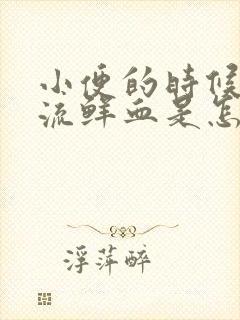 小便的時候
流鮮血是怎
浮萍醉